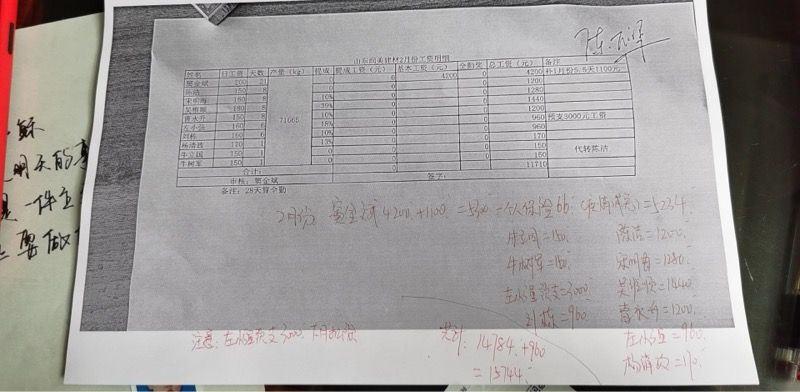 山东尚美建材2月份工资明细
姓名 日工资 天数 产量（kg） 提成 提成工资（元） 基本工资（元） 全勤奖 总工资（元） 备注
窦金斌 200 21 71065 0 0 4200 0 4200 补1月份5.5天1100元
陈浩 150 8 0 0 1200
160 8 10% 0 0 1280
180 8 0 0 1440
150 8 10% 0 0 1200
左小强 160 6 18% 0 0 960 预支3000元工资
刘栋 160 6 10% 0 0 960
杨清波 170 1 13% 0 0 170
牛立国 150 1 0 0 150 代转陈浩
牛树军 150 1 0 0 150
合计： 11710
审核：窦金斌 签字：
备注：28天算全勤
2月份 窦金斌 4200+1100=5300-个人保险66 =5234
牛立国=150 陈浩=1200
牛树军=150 =1280
左小强预支=3000 =1440
刘栋=960 =1200
注意：左小强预支3000，下月扣除 共计：14784+960 左小强=960
=15744 杨清波=170